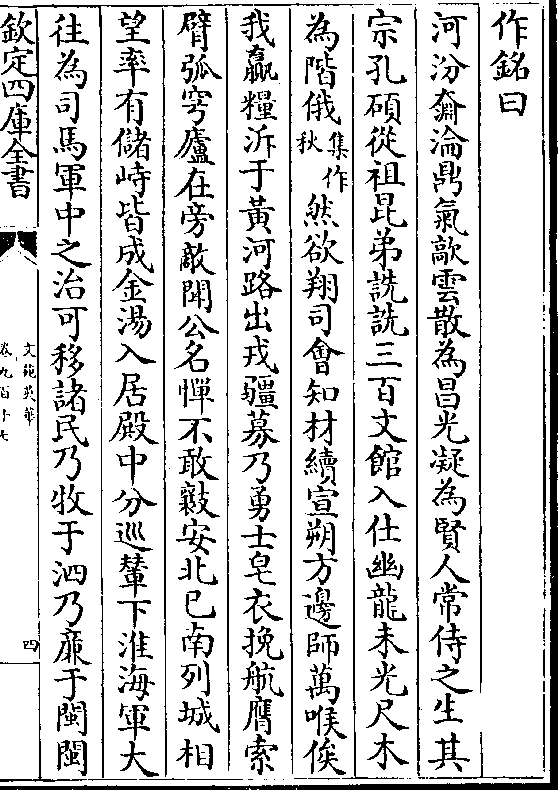 作銘曰
河汾奫淪鼎氣歊雲散為昌光凝為賢人常侍之生其
宗孔碩從祖昆弟詵詵三百文館入仕幽龍未光尺木
為階俄集作秋然欲翔司會知材續宣朔方邊師萬喉俟
我贏糧泝于黃河路出戎疆募乃勇士皂衣挽航膺索
臂弧穹廬在旁敵聞公名憚不敢觌安北已南列城相
望率有儲峙皆成金湯入居殿中分巡輦下淮海軍大
往為司馬軍中之治可移諸民乃牧于泗乃廉于閩閩
欽定四庫全書
文苑英華
卷九百十七
四